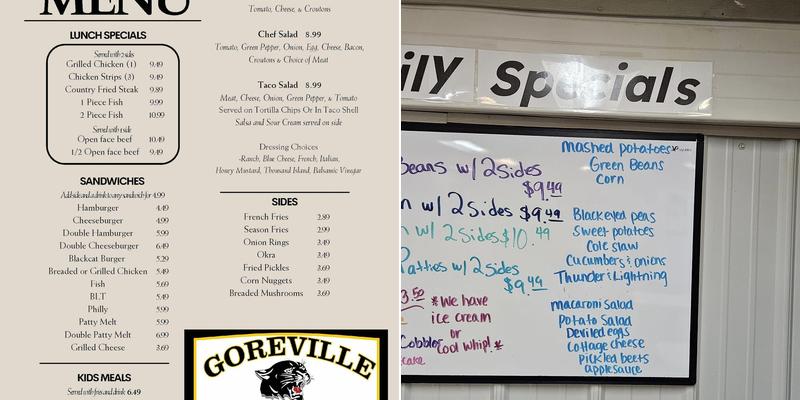 MENU
LUNCH SPECIALS
Served with 2 sides
Grilled Chicken (1) 9.49
Chicken Strips (3) 9.49
Country Fried Steak 9.89
1 Piece Fish 9.99
2 Piece Fish 10.99
Served with 1 side
Open face beef 10.49
1/2 Open face beef 9.49
SANDWICHES
Add side and a drink to any sandwich for 4.99
Hamburger 4.49
Cheeseburger 4.99
Double Hamburger 5.99
Double Cheeseburger 6.49
Blackcat Burger 5.29
Breaded or Grilled Chicken 5.49
Fish 5.69
BLT 5.49
Philly 5.99
Patty Melt 5.99
Double Patty Melt 6.99
Grilled Cheese 3.69
KIDS MEALS
Served with fries and drink 6.49
Tomato, Cheese, & Croutons
Chef Salad 8.99
Tomato, Green Pepper, Onion, Egg, Cheese, Bacon,
Croutons & Choice of Meat
Taco Salad 8.99
Meat, Cheese, Onion, Green Pepper, & Tomato
Served on Tortilla Chips Or In Taco Shell
Salsa and Sour Cream served on side
Dressing Choices
-Ranch, Blue Cheese, French, Italian,
Honey Mustard, Thousand Island, Balsamic Vinegar
SIDES
French Fries 2.89
Season Fries 2.99
Onion Rings 3.49
Okra 3.49
Fried Pickles 3.69
Corn Nuggets 3.49
Breaded Mushrooms 3.69
GOREVILLE
ily Specials
Beans w/ 2 Sides
$9.49
n w/ 2 Sides $9.49
n w/ 2 Sides $10.49
Patties w/ 2 Sides
$9.49
3.50 *We have
ice cream
or
Cobbler Cool whip! *
cake
mashed potatoes
Green Beans
Corn
Blackeyed peas
Sweet potatoes
Cole slaw
Cucumbers & onions
Thunder & Lightning
macaroni salad
Potato Salad
Deviled eggs
Cottage cheese
Pickled beets
applesauce